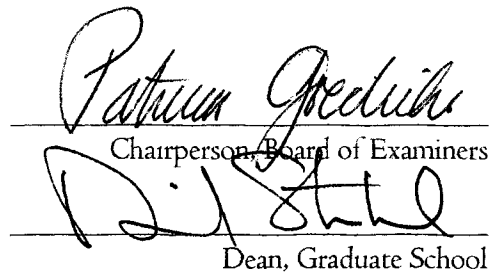 Patricia Goedicke
Chairperson, Board of Examiners
Dean, Graduate School